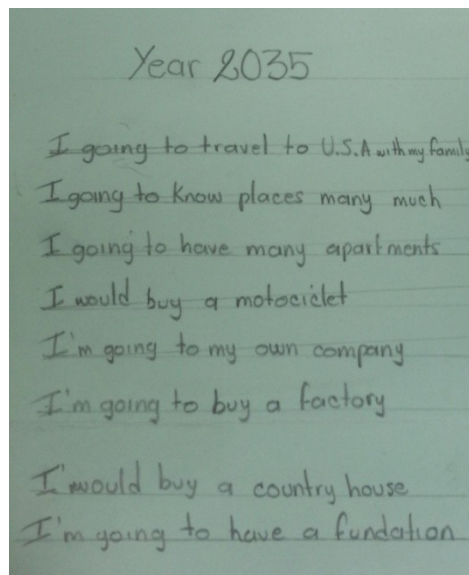 Year 2035
I going to travel to U.S.A with my family
I going to know places many much
I going to have many apartments
I would buy a motociclet
I'm going to my own company
I'm going to buy a factory
I'would buy a country house
I'm going to have a fundation